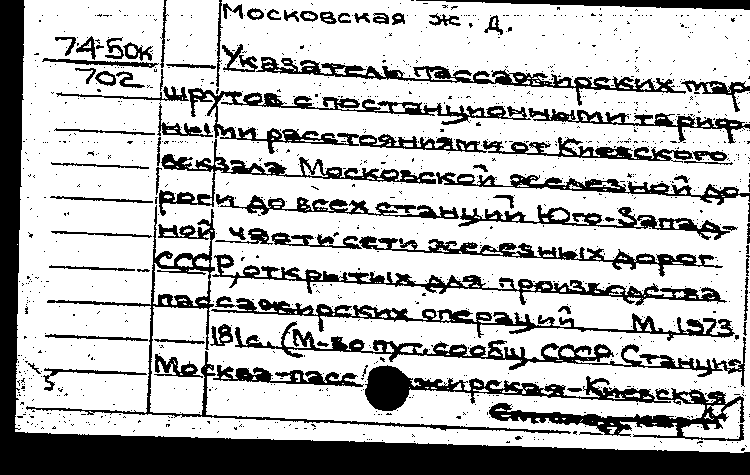 Московская ж. д.
74-50к
702
Указатель пассажирских мар-
шрутов с постанционными тариф-
ными расстояниями от Киевского
вокзала Московской железной до-
роги до всех станций Юго-Запад-
ной части сети железных дорог
СССР, открытых для производства
пассажирских операций. М., 1973.
181 с. (М-во пут. сообщ. СССР. Станция
Москва-пассажирская-Киевская
5.